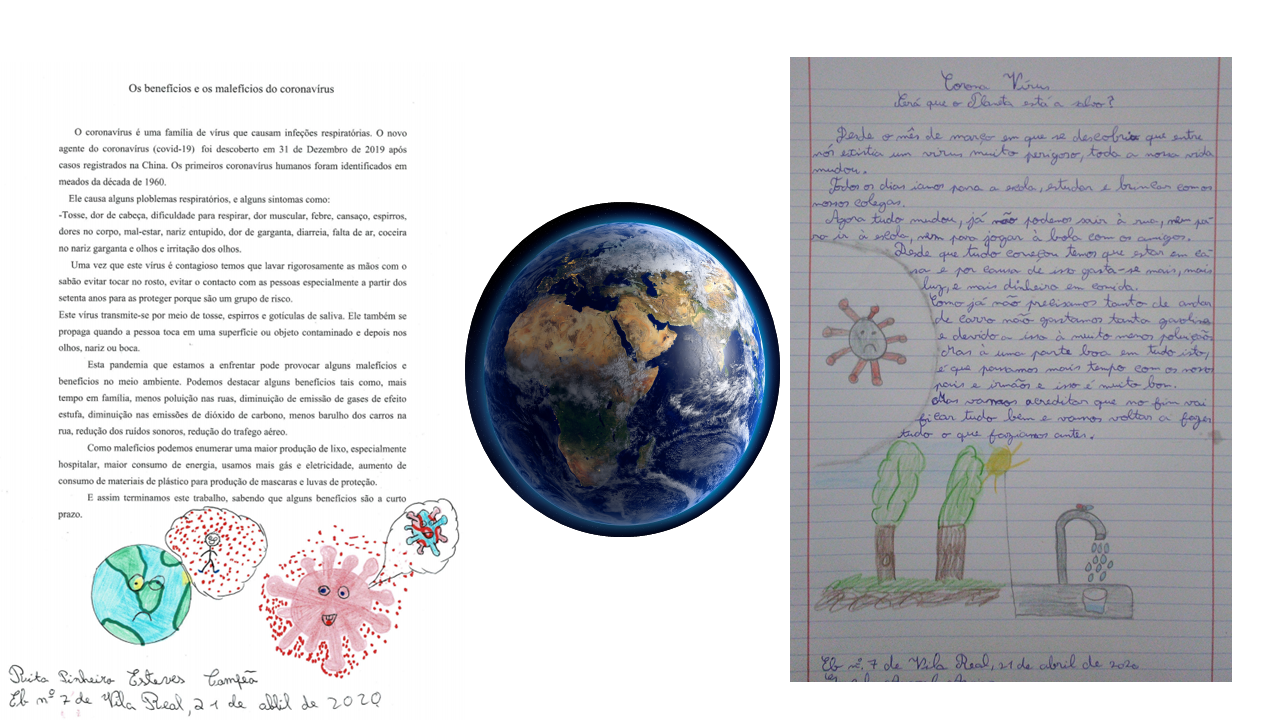 Os benefícios e os malefícios do coronavírus
O coronavírus é uma família de vírus que causam infeções respiratórias. O novo
agente do coronavírus (covid-19) foi descoberto em 31 de Dezembro de 2019 após
casos registrados na China. Os primeiros coronavírus humanos foram identificados em
meados da década de 1960.
Ele causa alguns ploblemas respiratórios, e alguns sintomas como:
-Tosse, dor de cabeça, dificuldade para respirar, dor muscular, febre, cansaço, espirros,
dores no corpo, mal-estar, nariz entupido, dor de garganta, diarreia, falta de ar, coceira
no nariz garganta e olhos e irritação dos olhos.
Uma vez que este vírus é contagioso temos que lavar rigorosamente as mãos com o
sabão evitar tocar no rosto, evitar o contacto com as pessoas especialmente a partir dos
setenta anos para as proteger porque são um grupo de risco.
Este vírus transmite-se por meio de tosse, espirros e gotículas de saliva. Ele também se
propaga quando a pessoa toca em uma superfície ou objeto contaminado e depois nos
olhos, nariz ou boca.
Esta pandemia que estamos a enfrentar pode provocar alguns malefícios e
benefícios no meio ambiente. Podemos destacar alguns benefícios tais como, mais
tempo em família, menos poluição nas ruas, diminuição de emissão de gases de efeito
estufa, diminuição nas emissões de dióxido de carbono, menos barulho dos carros na
rua, redução dos ruídos sonoros, redução do trafego aéreo.
Como malefícios podemos enumerar uma maior produção de lixo, especialmente
hospitalar, maior consumo de energia, usamos mais gás e eletricidade, aumento de
consumo de materiais de plástico para produção de mascaras e luvas de proteção.
E assim terminamos este trabalho, sabendo que alguns benefícios são a curto
prazo.
Rita Pinheiro Esteves Campeã
Eb nº 7 de Vila Real, 21 de abril de 2020
Corona Vírus
Será que o Planeta está a salvo?
Desde o mês de março em que se descobriu que entre
nós existia um vírus muito perigoso, toda a nossa vida
mudou.
Todos os dias íamos para a escola, estudar e brincar com os
nossos colegas.
Agora tudo mudou, já não podemos sair à rua, nem pa-
ra ir à escola, nem para jogar à bola com os amigos.
Desde que tudo começou temos que estar em ca-
sa e por causa de isso gasta-se mais, mais
luz, e mais dinheiro em comida.
Como já não precisamos tanto de andar
de carro não gastamos tanta gasolina
e devido a isso à muito menos poluição
Mas à uma parte boa em tudo isto,
é que passamos mais tempo com os nosso
pais e irmãos e isso é muito bom.
Mas vamos acreditar que no fim vai
ficar tudo bem e vamos voltar a fazer
tudo o que fazíamos antes.
Eb nº. 7 de Vila Real, 21 de abril de 2020